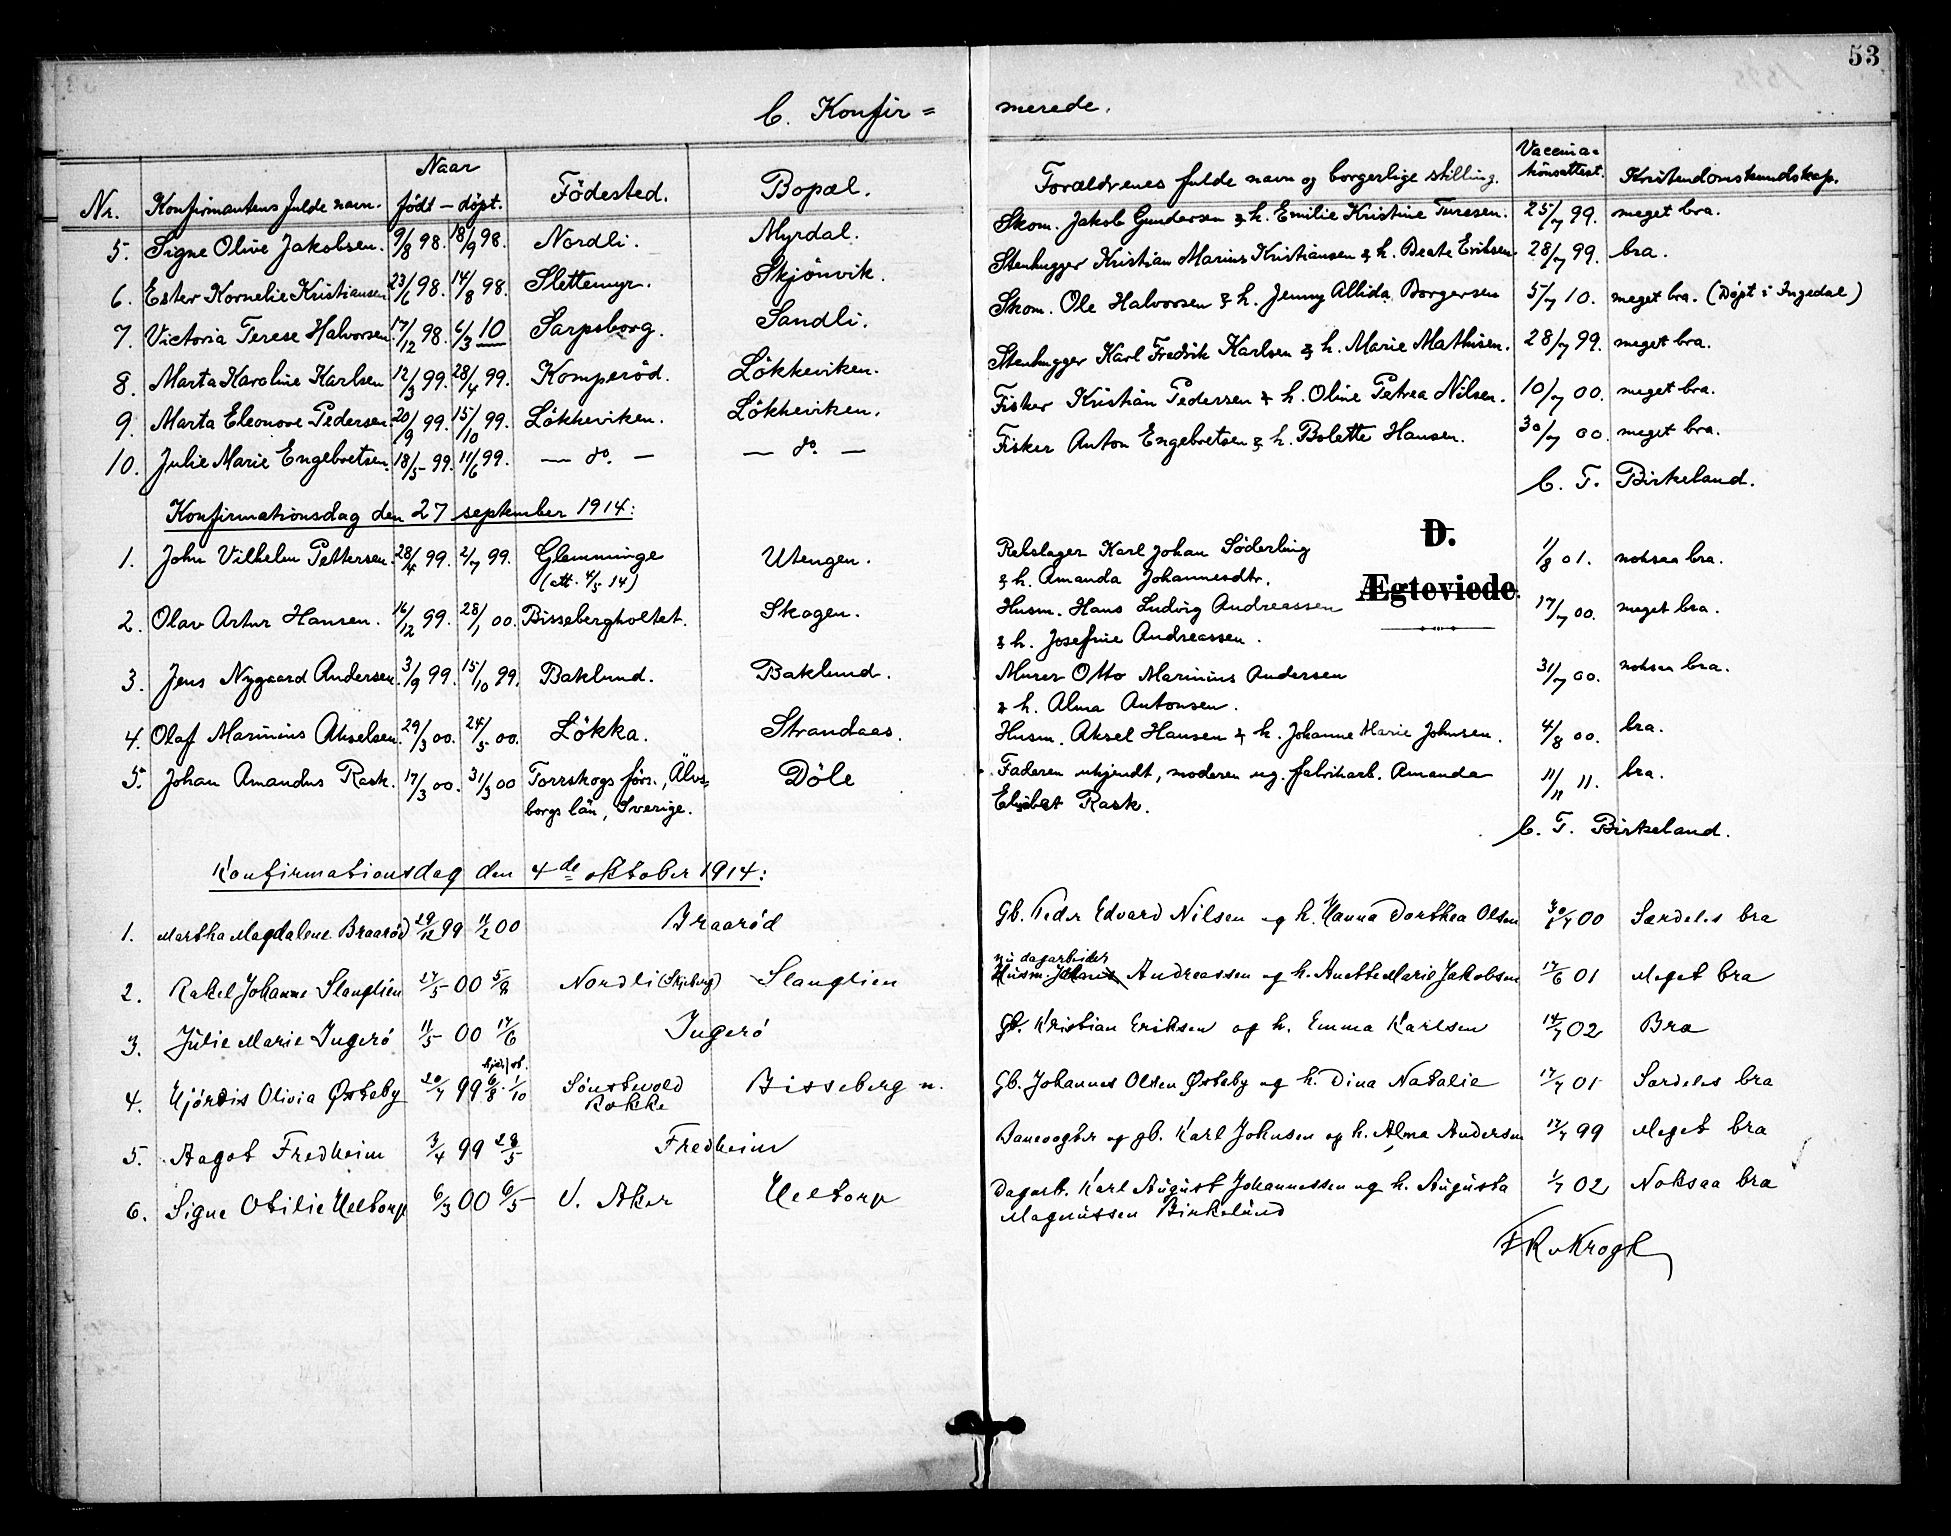 53
C. Konfir= merede.
Nr. Konfirmantens fulde navn. Naar födt – döpt. Födested. Bopæl. Forældrenes fulde navn og borgerlige stilling. Vaccina=tionsattest. Kristendomskundskap.
5. Signe Olive Jakobsen. 9/8 98. 18/9 98. Nordli. Myrdal. Skom. Jakob Gundersen & h. Emilie Kristine Turesen. 25/7 99. meget bra.
6. Ester Kornelie Kristiansen 23/6 98. 14/8 98. Slettemyr. Skjönvik. Stenhugger Kristian Marius Kristiansen & h. Beate Eriksen 28/7 99. bra.
7. Victoria Terese Halvorsen 17/12 98. 6/3 10 Sarpsborg. Sandli. Skom. Ole Halvorsen & h. Jenny Allida Borgersen 5/7 10. meget bra. (Döpt i Ingedal)
8. Marta Karoline Karlsen 12/3 99. 28/4 99. Komperöd. Lökkeviken. Stenhugger Karl Fredrik Karlsen & h. Marie Mathisen. 28/7 99. meget bra.
9. Marta Eleonore Pedersen 20/9 99. 15/10 99. Lökkeviken. Lökkeviken. Fisker Kristian Pedersen & h. Oline Petrea Nilsen. 10/7 00. meget bra.
10. Julie Marie Engebretsen. 18/5 99. 11/6 99. — do. — — do. — Fisker Anton Engebretsen & h. Bolette Hansen. 30/7 00. meget bra.
C. T. Birkeland.
Konfirmationsdag den 27 september 1914:
D.
Ægteviede.
1. John Vilhelm Pettersen. 28/4 99. 2/7 99. Glemminge Utengen. Rebslager Karl Johan Söderling 11/8 01. noksaa bra.
(att. 4/5 14) & h. Amanda Johannesdtr.
2. Olav Artur Hansen. 16/12 99. 28/1 00. Bissebergholtet. Skogen. Husm. Hans Ludvig Andreassen 17/7 00. meget bra.
& h. Josefine Andreassen.
3. Jens Nygaard Andersen 3/9 99. 15/10 99. Baklund. Baklund. Murer Otto Marinius Andersen 31/7 00. noksaa bra.
& h. Alma Antonsen.
4. Olaf Marinius Akselsen. 29/3 00. 24/5 00. Lökka. Strandaas. Husm. Aksel Hansen & h. Johanne Marie Johnsen. 4/8 00. bra.
5. Johan Amandus Rask. 17/3 00. 31/3 00 Torrskogs förs., Älvs= Döle Faderen ukjendt, moderen ug. fabrikarb. Amanda 11/11 11. bra.
borgs län, Sverige. Elisabet Rask.
C. T. Birkeland.
Konfirmationsdag den 4de oktober 1914:
1. Martha Magdalene Braaröd 29/12 99 11/2 00 Braaröd Gb. Peder Edvard Nilsen og h. Hanna Dorthea Olsen 30/7 00 Særdeles bra
nu dagarbeider
2. Rakel Johanne Slauglien 27/5 00 5/8 Nordli (Skjeberg) Slauglien Husm. Johannes Andreassen og h. Anette Marie Jakobsen 17/6 01 Meget bra
3. Julie Marie Ingerö 11/5 00 17/6 Ingerö Gb. Kristian Eriksen og h. Emma Karlsen 14/7 02 Bra
4. Hjördis Olivia Østeby 20/7 99 6/8 1/10 Sönstevold Bisseberg n. Gb. Johannes Olsen Østeby og h. Dina Natalie 17/7 01 Særdeles bra
Rokke
5. Aagot Fredheim 3/4 99 28/5 Fredheim Banevogter og gb. Karl Johnsen og h. Alma Andersen 17/7 99 Meget bra
6. Signe Otilie Heltorp 6/3 00 6/5 V. Aker Heltorp Dagarb. Karl August Johannessen og h. Augusta 1/7 02 Noksaa bra
Magnussen Birkelund
FR v Krogh